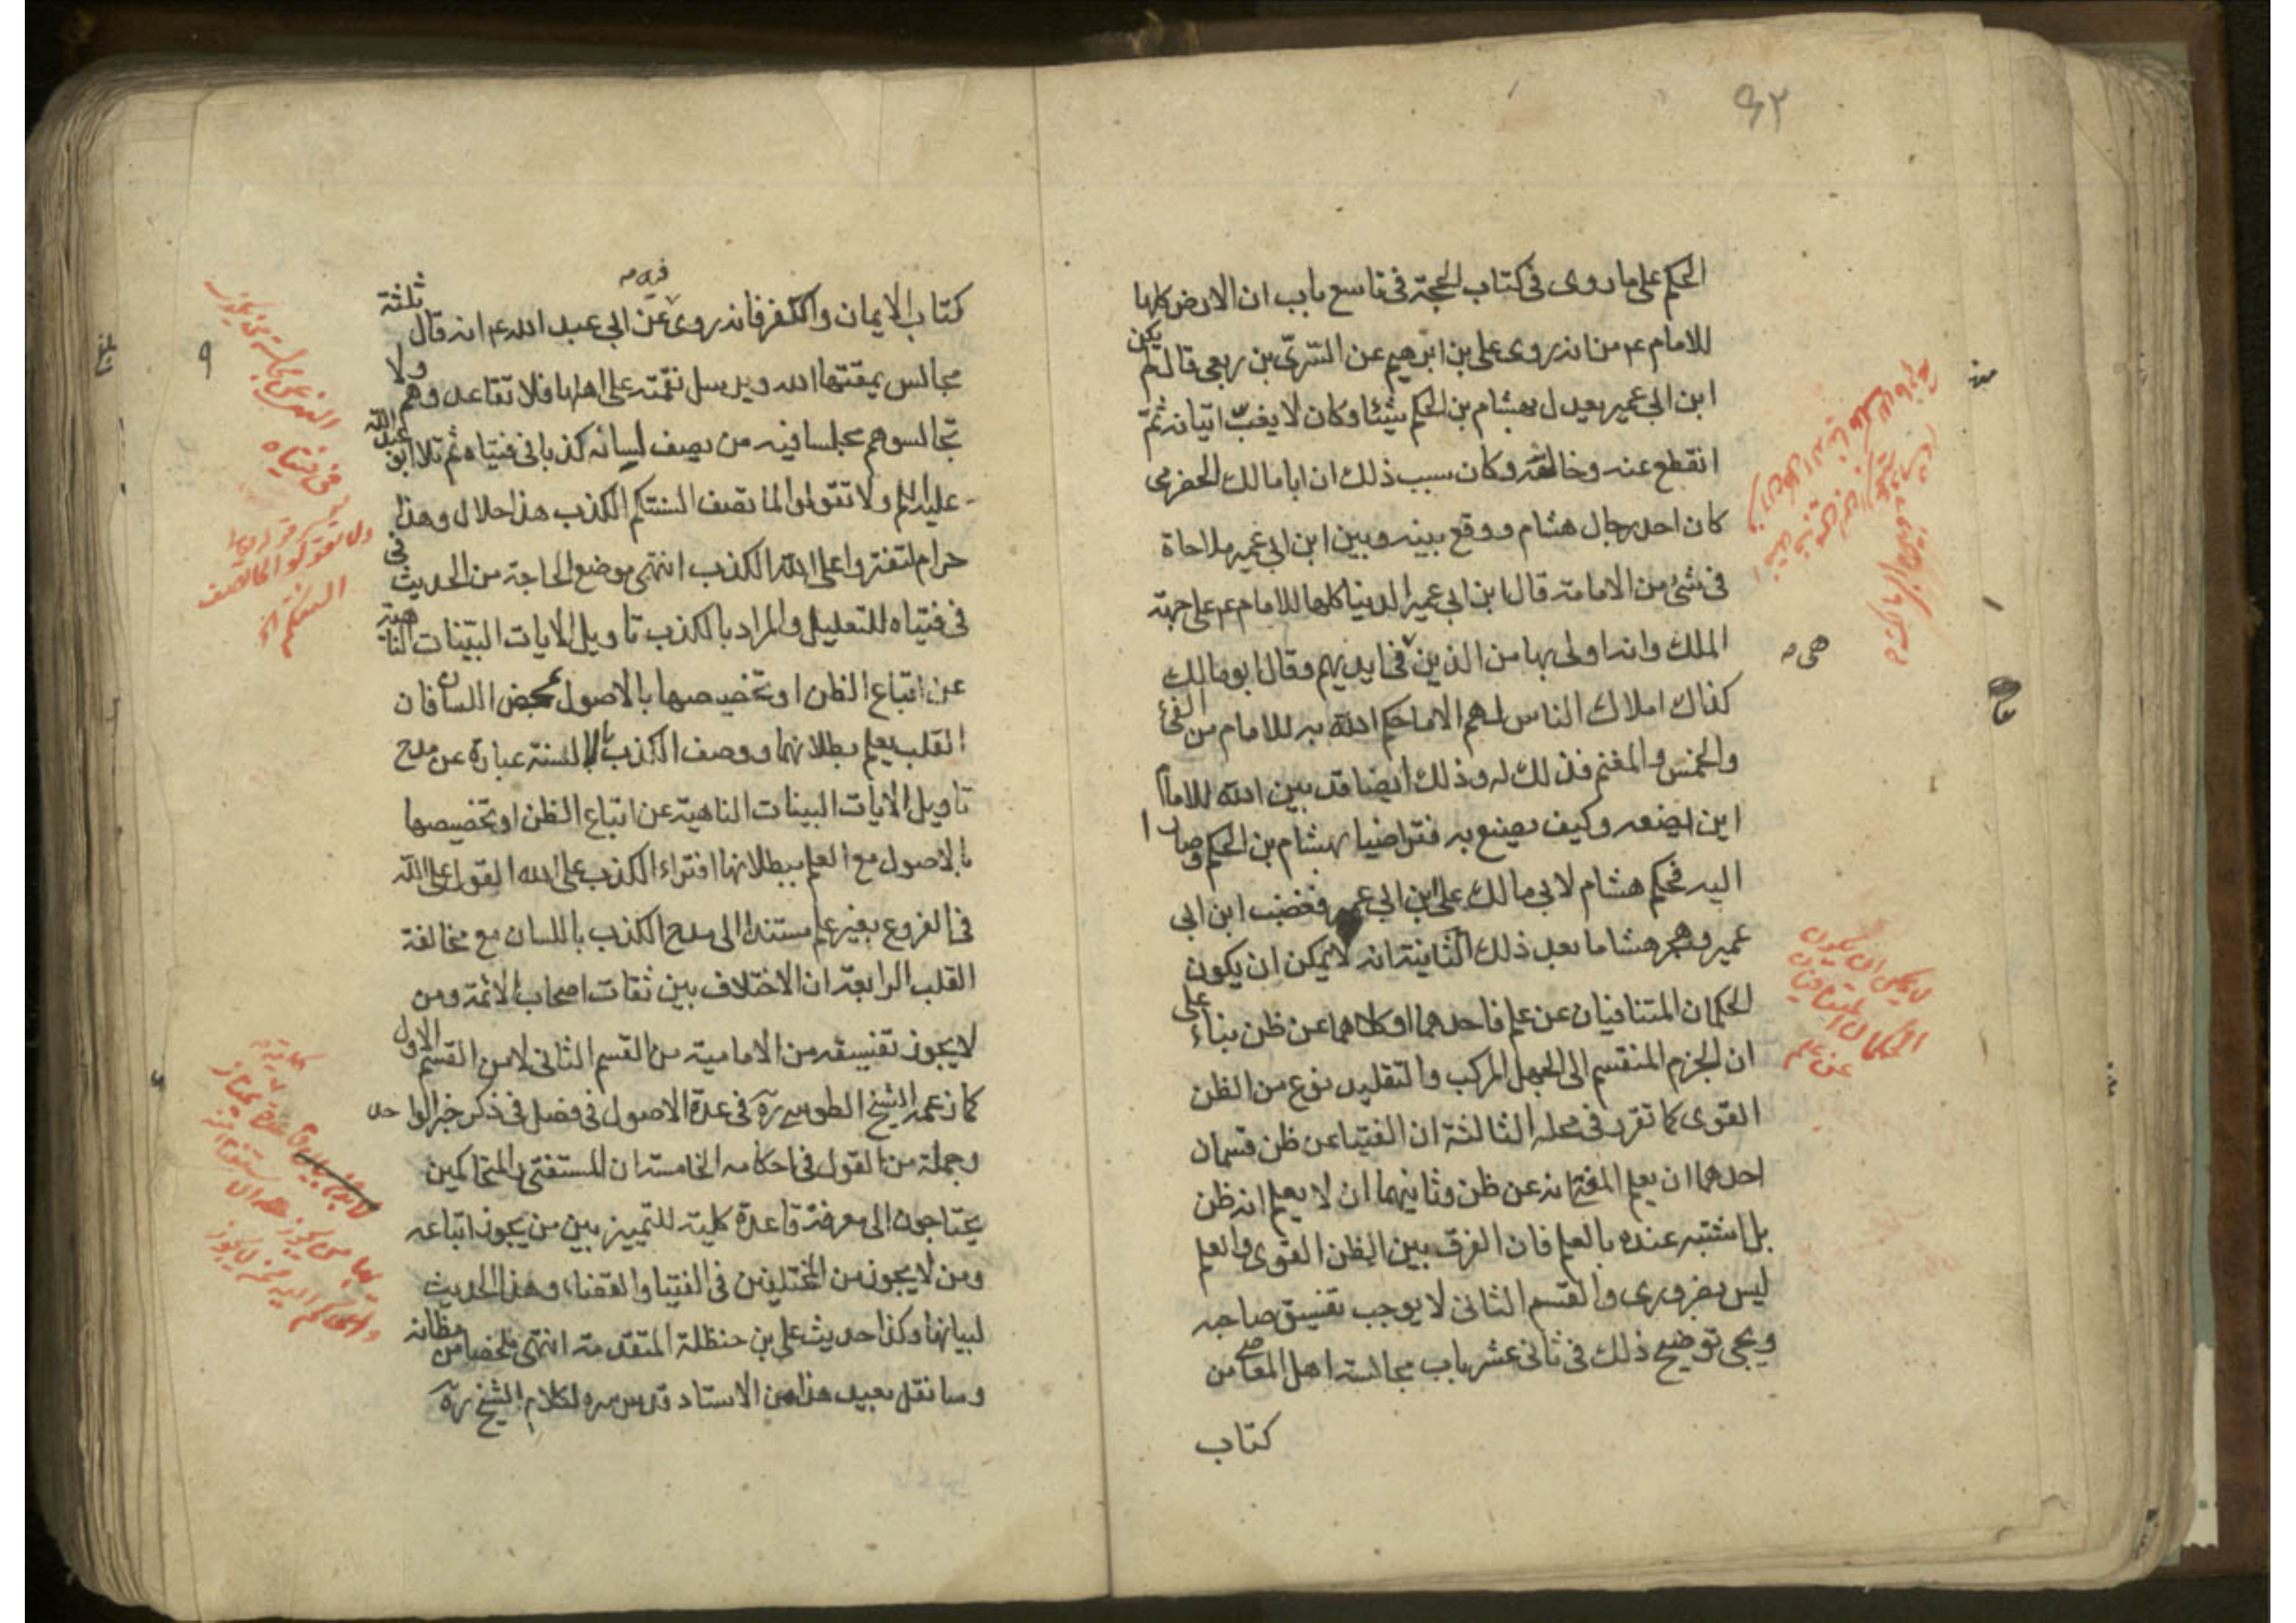 ٩٢
الحكم على ما روى فى كتاب الحجة فى تاسع باب ان الارض كلها
للامام ع م من انه روى على بن ابرهيم عن السّرىّ بن ربعى قال لم يكن
ابن ابى عمير يعدل بهشام بن الحكم شيئا وكان لا يغبّ اتيانه ثمّ
انقطع عنه وخالفه وكان سبب ذلك ان ابا مالك الحضرمى
كان احد رجال هشام ووقع بينه وبين ابن ابى عمير ملاحاة
فى شئ من الامامة قال ابن ابى عمير الدنيا كلها للامام ع م على جهة
الملك وانه اولى بها من الذين فى ايديهم وقال ابو مالك
هى
كذاك املاك الناس لهم الا ما حكم الله به للامام من الفئ
والخمس والمغنم فذلك له وذلك ايضا قد بين الله للامام
اين يضعه وكيف يصنع به فتراضيا بهشام بن الحكم وصارا
اليه فحكم هشام لابى مالك على ابن ابى عمير فغضب ابن ابى
عمير وهجر هشاما بعد ذلك الثانية انه لا يمكن ان يكون
الحكمان المتنافيان عن علم فاحدهما او كلاهما عن ظن بناء على
ان الجزم المنقسم الى الجهل المركب والتقليد نوع من الظن
القوى كما تقرر فى محله الثالثة ان الفتيا عن ظن قسمان
احدهما ان يعلم المفتى انه عن ظن وثانيهما ان لا يعلم انه ظن
بل اشتبه عنده بالعلم فان الفرق بين الظن القوى والعلم
ليس بضرورى والقسم الثانى لا يوجب تفسيق صاحبه
ويجى توضيح ذلك فى ثانى عشر باب مجالسة اهل المعاصى من
كتاب
لا يمكن ان يكون
الحكمان المتنافيان
عن علم
كتاب الايمان والكفر فانه روى عن ابى عبد الله ع م انه قال ثلثة
مجالس يمقتها الله ويرسل نقمته على اهلها فلا تقاعدوهم ولا
تجالسوهم مجلسا فيه من يصف لسانه كذبا فى فتياه ثم تلا ابو عبد الله
عليه السلم ولا تقولوا لما تصف السنتكم الكذب هذا حلال وهذا
حرام لتفتروا على الله الكذب انتهى موضع الحاجة من الحديث فى
فى فتياه للتعليل والمراد بالكذب تاويل الايات البينات الناهية
عن اتباع الظن او تخصيصها بالاصول بمحض اللسان فان
القلب يعلم بطلانهما ووصف الكذب بالالسنة عبارة عن مدح
تاويل الايات البينات الناهية عن اتباع الظن او تخصيصها
بالاصول مع العلم ببطلانها افتراء الكذب على الله القول على الله
فى الفروع بغير علم مستندا الى مدح الكذب باللسان مع مخالفة
القلب الرابعة ان الاختلاف بين ثقات اصحاب الائمة ومن
لا يجوز تفسيقه من الامامية من القسم الثانى لا من القسم الاول
كما زعمه الشيخ الطوسى ره فى عدة الاصول فى فصل فى ذكر خبر الواحد
وجملة من القول فى احكامه الخامسة ان المستفتى والمتحاكمين
يحتاجون الى معرفة قاعدة كلية للتمييز بين من يجوز اتباعه
ومن لا يجوز من المختلفين فى الفتيا والقضاء وهذا الحديث
لبيانها وكذا حديث على بن حنظلة المتقدمة انتهى ملخصا من مظانه
وسانقل بعيد هذا من الاستاد قدس سره لكلام الشيخ ره
فى فتياه
ولا تقولوا لما تصف
السنتكم